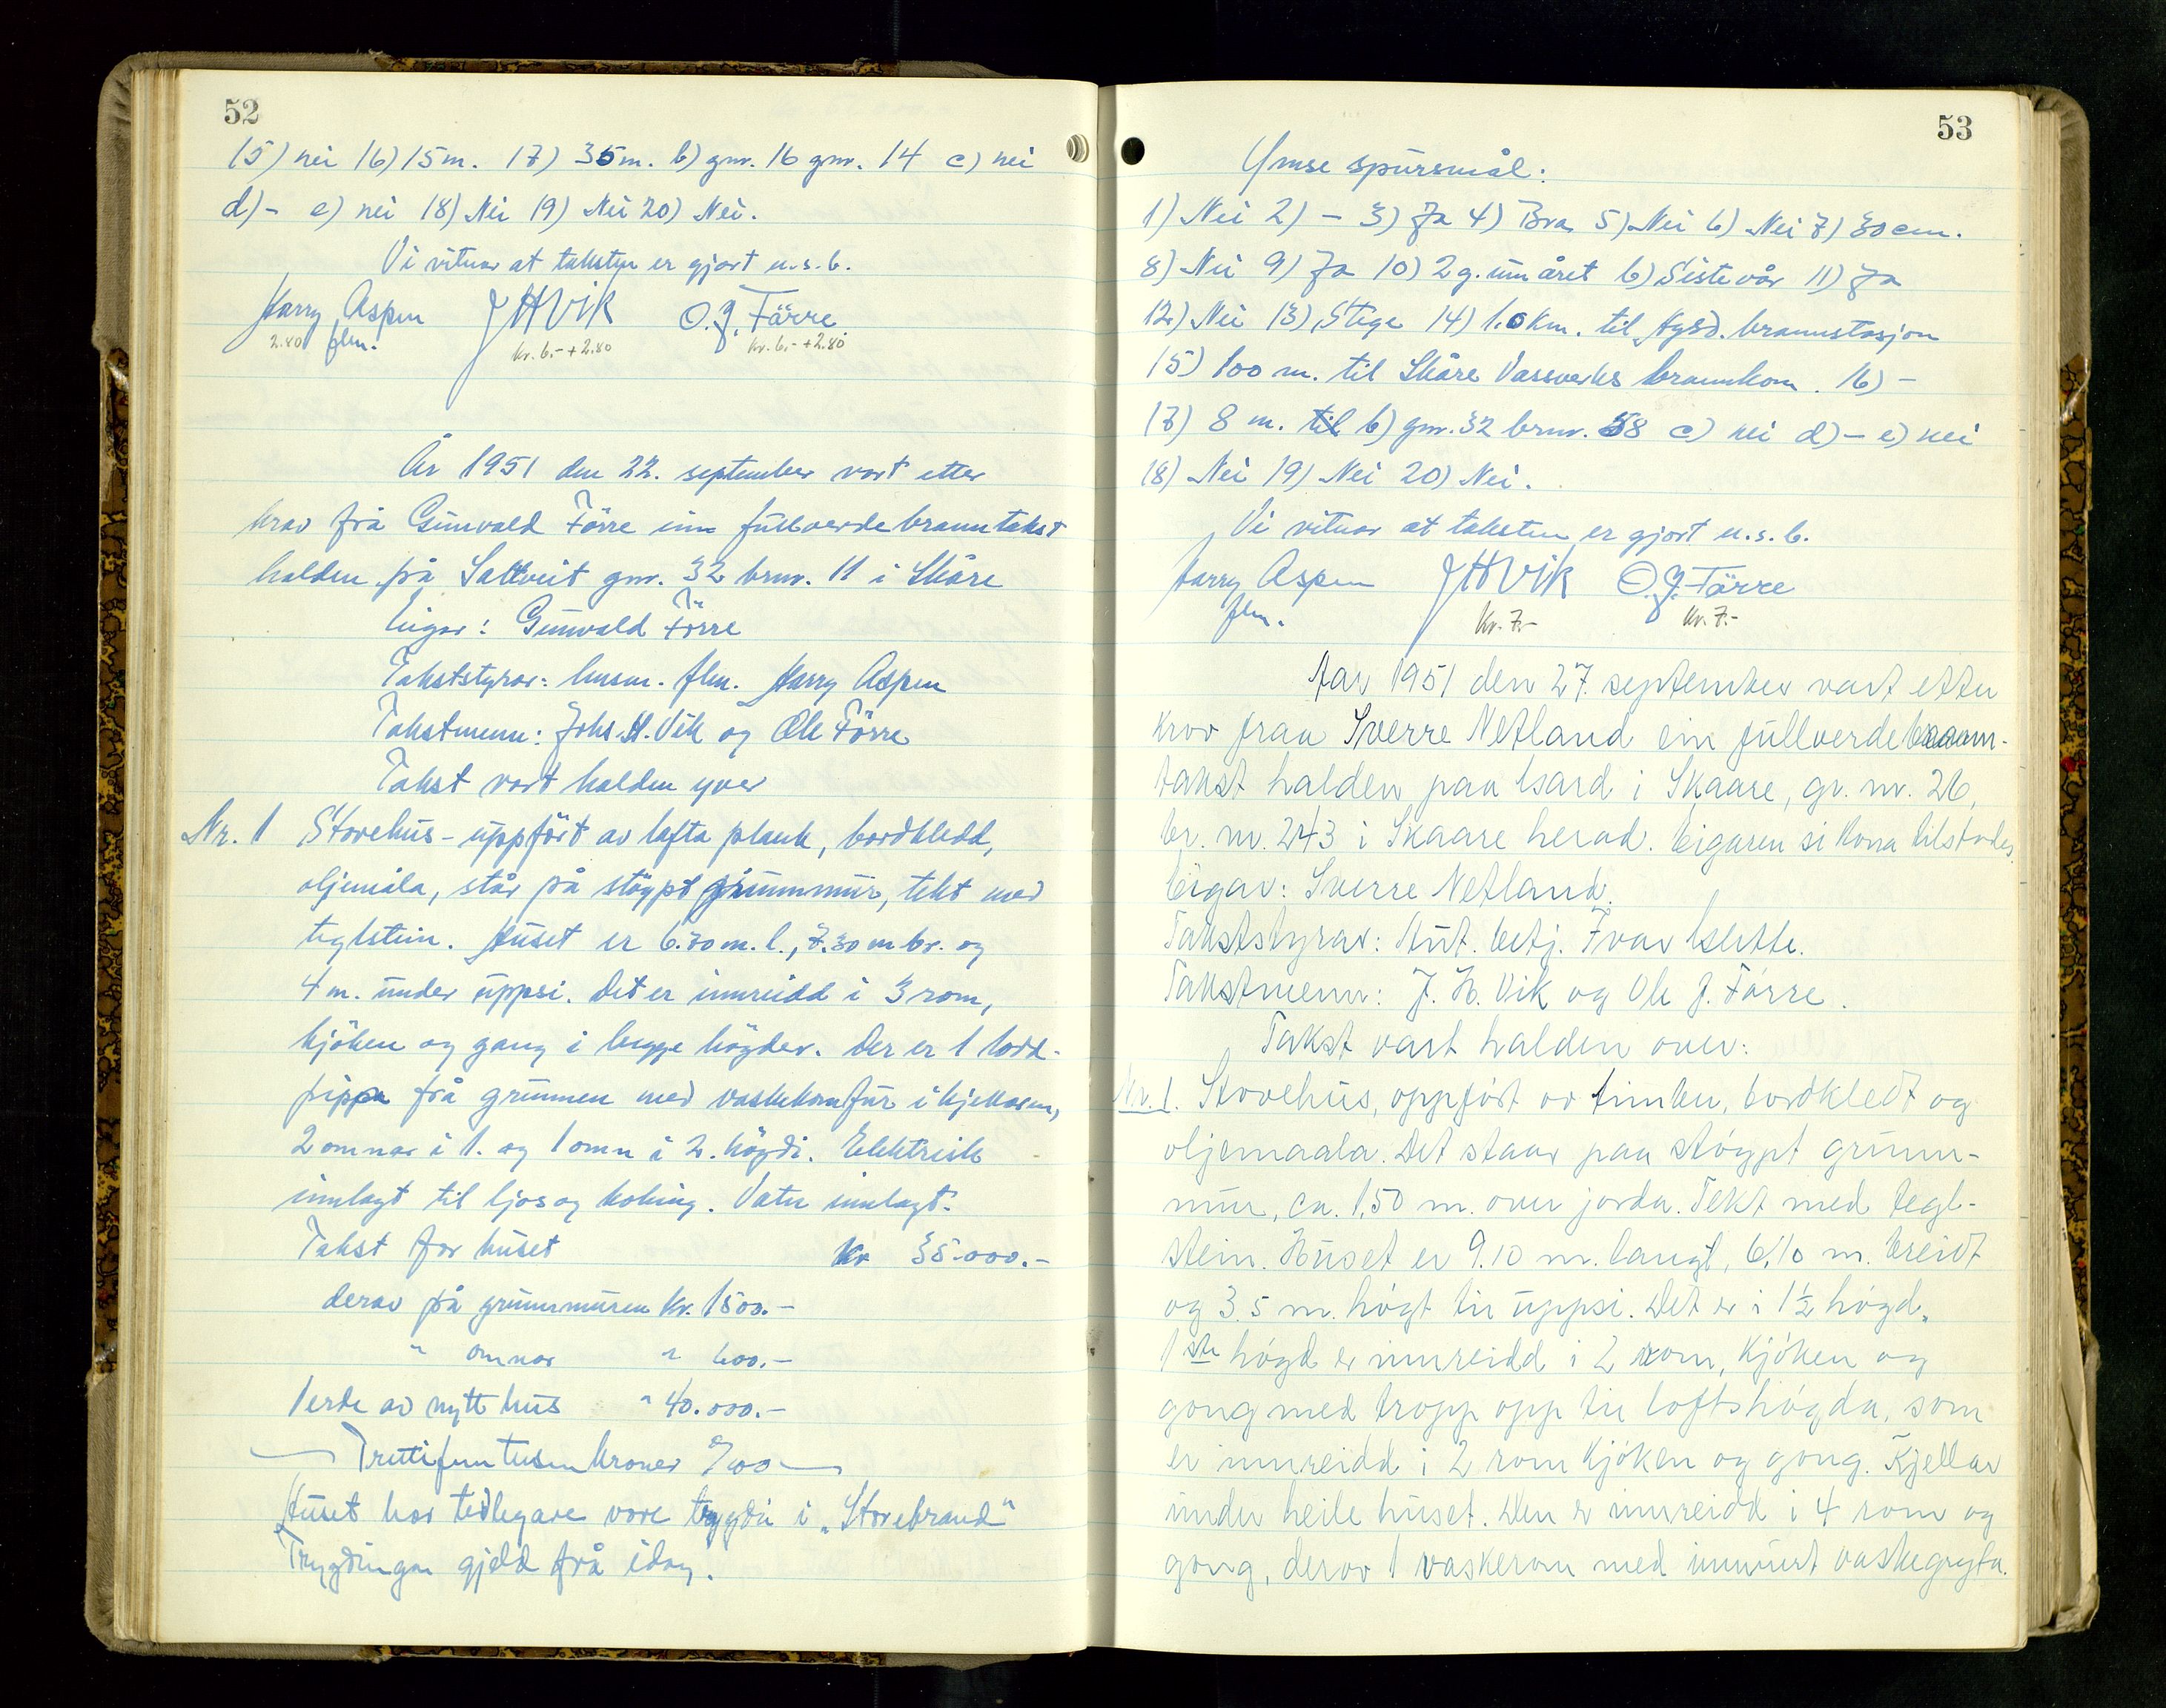 52
15) nei 16) 15 m. 17) 35 m. b) gnr. 16 gnr. 14 c) nei
d) - e) nei 18) Nei 19) Nei 20) Nei.
Vi vitnar at taksten er gjort u.s.b.
Harry Aspen JHVik O.J. Förre
2.40 flm. kr. 6.- + 2.80 kr. 6.- + 2.80
År 1951 den 22. september vart etter
krav frå Gunvald Förre ein fullverdebranntakst
halden på Saltveit gnr. 32 brnr. 11 i Skåre
Eigar: Gunvald Förre
Takststyrar: lensm. flm. Harry Aspen
Takstmenn: Johs. H. Vik og Ole Förre
Takst vart halden yver
Nr. 1 Stovehus - uppført av lafta plank, bordkledd,
oljemåla, står på støypt grunnmur, tekt med
teglstein. Huset er 6.30 m. l., 7.30 m br. og
4 m. under uppsi. Det er innreidd i 3 rom,
kjöken og gang i begge högder. Der er 1 lodd-
pipa frå grunnen med vaskekomfur i kjellaren,
2 omnar i 1. og 1 omn i 2. högdi. Elektrisk
innlagt til ljos og koking. Vatn innlagt.
Takst for huset Kr 35.000.-
derav på grunnmuren Kr. 1500.-
" omnar " 600.-
Verde av nytt hus " 40.000.-
Trettifemtusen kroner 0/00
Huset har tidlegare vore trygda i "Storebrand"
Trygdinga gjeld frå idag.
53
Ymse spursmål:
1) Nei 2) - 3) Ja 4) Bra 5) Nei 6) Nei 7) 30 cm.
8) Nei 9) Ja 10) 2 g. um året b) Siste vår 11) Ja
12) Nei 13) Stige 14) 1.0 km. til Hgsd. brannstasjon
15) 100 m. til Skåre Vassverks brannkom. 16) -
17) 8 m. til b) gnr. 32 brnr. 58 c) nei d) - e) nei
18) Nei 19) Nei 20) Nei.
Vi vitnar at taksten er gjort u.s.b.
Harry Aspen JHVik O.J. Förre
flm. Kr. 7.- Kr. 7.-
Aar 1951 den 27. september vart etter
krav fraa Sverre Netland ein fullverdebrann-
takst halden paa Gard i Skaare, gr. nr. 26,
br. nr. 243 i Skaare herad. Eigaren si kona tilstades.
Eigar: Sverre Netland.
Takststyrar: Aut. betj. Ivar
Takstmenn: J. H. Vik og Ole J. Förre.
Takst vart halden over:
Nr. 1. Stovehus, oppført av timber, bordkledt og
oljemaala. Det staar paa støypt grunn-
mur, ca. 1,50 m. over jorda. Tekt med tegl-
stein. Huset er 9.10 m. langt, 6,10 m. breidt
og 3.5 m. høgt til uppsi. Det er i 1½ høgd.
1ste høgd er innreidd i 2 rom, kjøken og
gong med tropp opp til loftshøgda, som
er innreidd i 2 rom kjøken og gong. Kjellar
under heile huset. Den er innreidd i 4 rom og
gong, derav 1 vaskerom med innmurt vaskegryta.